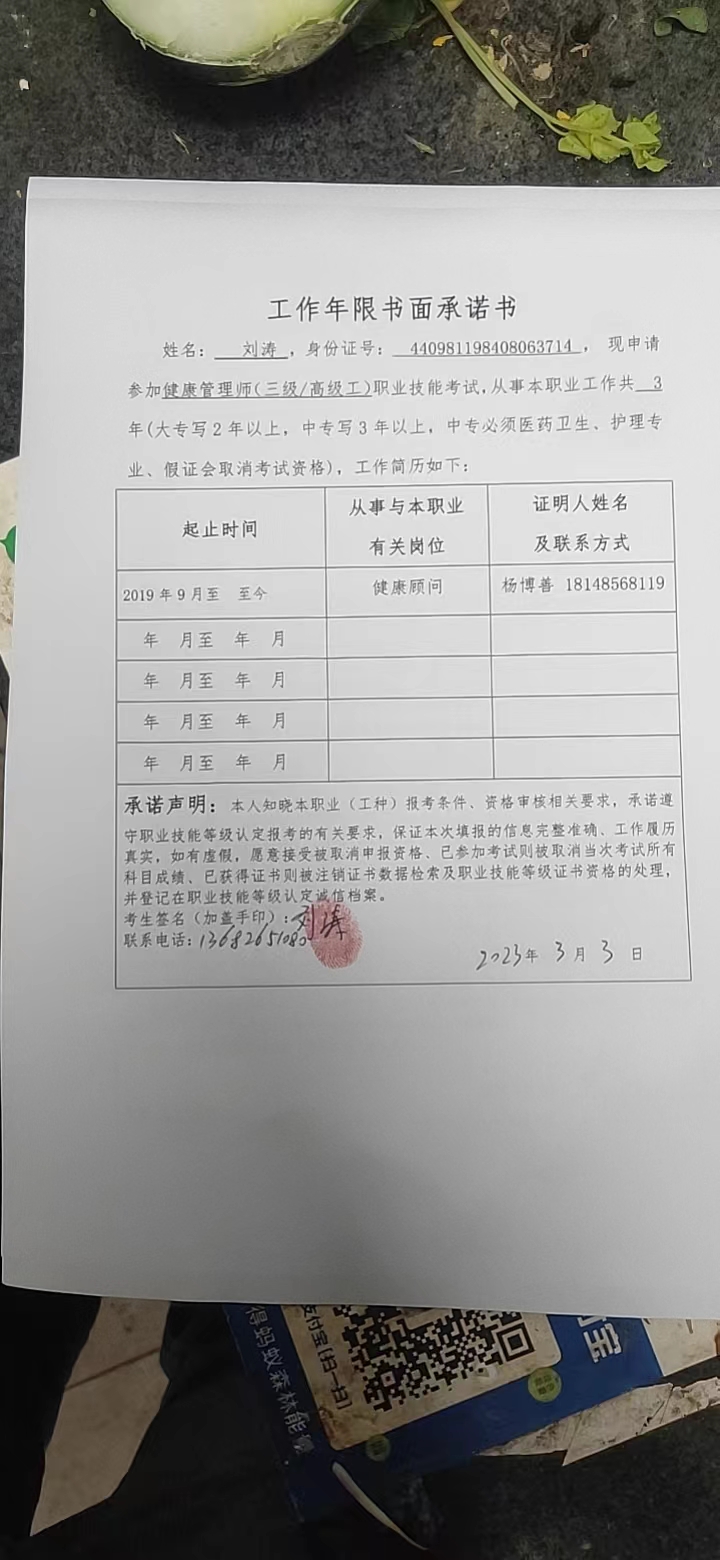 工作年限书面承诺书
姓名： 刘涛 ，身份证号： 440981198408063714 ， 现申请
参加健康管理师(三级/高级工)职业技能考试,从事本职业工作共 3
年(大专写2年以上，中专写3年以上，中专必须医药卫生、护理专
业、假证会取消考试资格)，工作简历如下：
起止时间
从事与本职业
有关岗位
证明人姓名
及联系方式
2019年9月至 至今 健康顾问 杨博善 18148568119
年 月至 年 月
年 月至 年 月
年 月至 年 月
年 月至 年 月
承诺声明：本人知晓本职业（工种）报考条件、资格审核相关要求，承诺遵
守职业技能等级认定报考的有关要求，保证本次填报的信息完整准确、工作履历
真实，如有虚假，愿意接受被取消申报资格、已参加考试则被取消当次考试所有
科目成绩、已获得证书则被注销证书数据检索及职业技能等级证书资格的处理，
并登记在职业技能等级认定诚信档案。
考生签名（加盖手印）：刘涛
联系电话：13682651080
2023年 3月 3日
支付宝[扫一扫]
得蚂蚁森林能量
宝